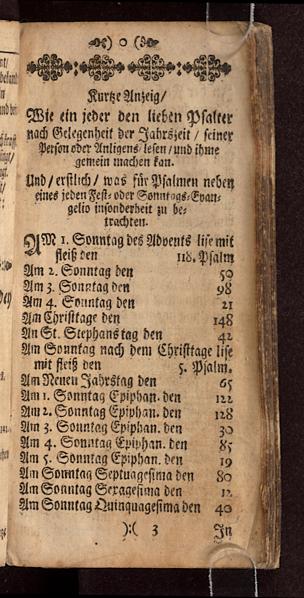 o
Kurtze Anzeig/
Wie ein jeder den lieben Psalter
nach Gelegenheit der Jahrszeit / seiner
Person oder Anligens/ lesen/ und ihme
gemein machen kan.
Und/ erstlich/ was für Psalmen neben
eines jeden Fest- oder Sonntags-Evan-
gelio insonderheit zu be-
trachten.
AM 1. Sonntag des Advents lise mit
fleiß den 118. Psalm
Am 2. Sonntag den 50
Am 3. Sonntag den 98
Am 4. Sonntag den 21
Am Christtage den 148
An St. Stephans tag den 42
Am Sonntag nach dem Christtage lise
mit fleiß den 5. Psalm.
Am Neuen Jahrstag den 65
Am 1. Sonntag Epiphan. den 122
Am 2. Sonntag Epiphan. den 128
Am 3. Sonntag Epiphan. den 30
Am 4. Sonntag Epiphan. den 85
Am 5. Sonntag Epiphan. den 19
Am Sonntag Septuagesima den 80
Am Sonntag Sexagesima den 12
Am Sonntag Quinquagesima den 40
):( 3 In